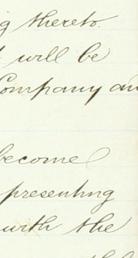 g thereto.
will be
Company an
become
presenting
with the